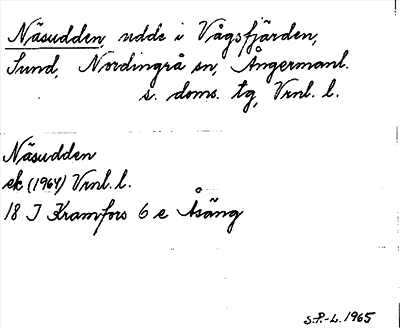 Näsudden, udde i Vågsfjärden,
Sund, Nordingrå sn, Ångermanl.
s. doms. tg, Vrnl. l.
Näsudden
ek (1964) Vrnl. l.
18 J Kramfors 6 e Åsäng
S.P.-L. 1965